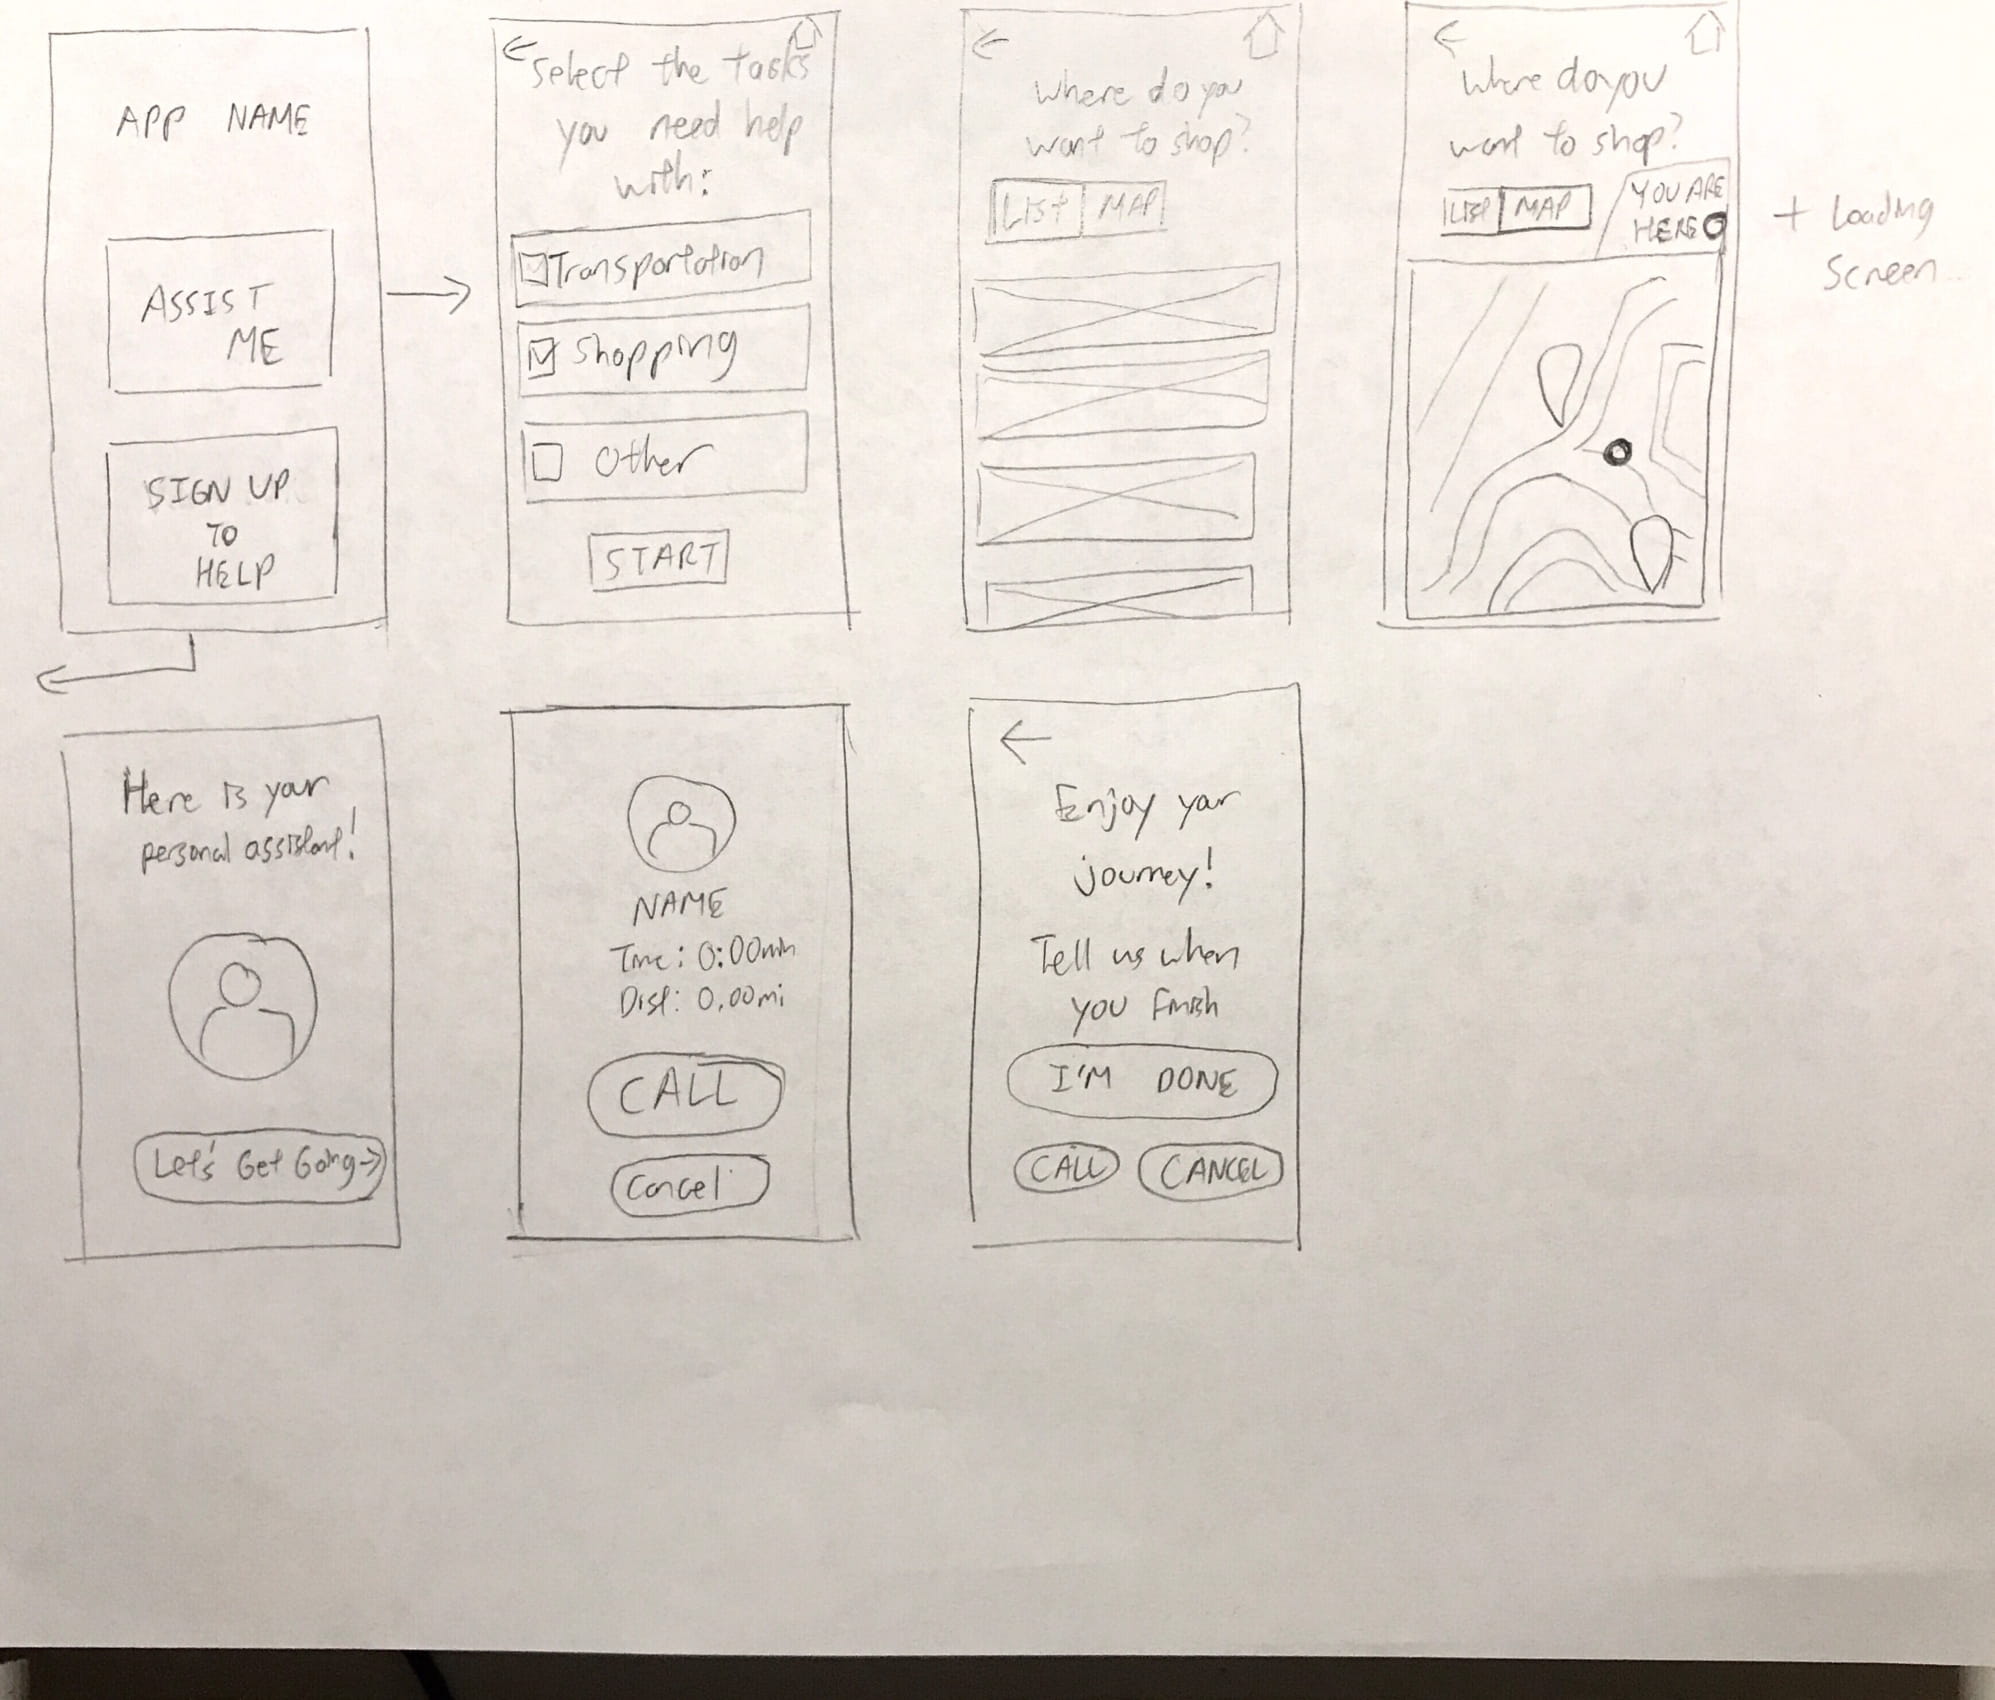 APP NAME
ASSIST
ME
SIGN UP
TO
HELP
Select the tasks
you need help
with:
Transportation
Shopping
Other
START
Where do you
want to shop?
LIST MAP
Where do you
want to shop?
LIST MAP
YOU ARE
HERE
+ Loading
Screen...
Here is your
personal assistant!
Let's Get Going →
NAME
Time: 0:00min
Dist: 0.00mi
CALL
Cancel
Enjoy your
journey!
Tell us when
you finish
I'M DONE
CALL CANCEL